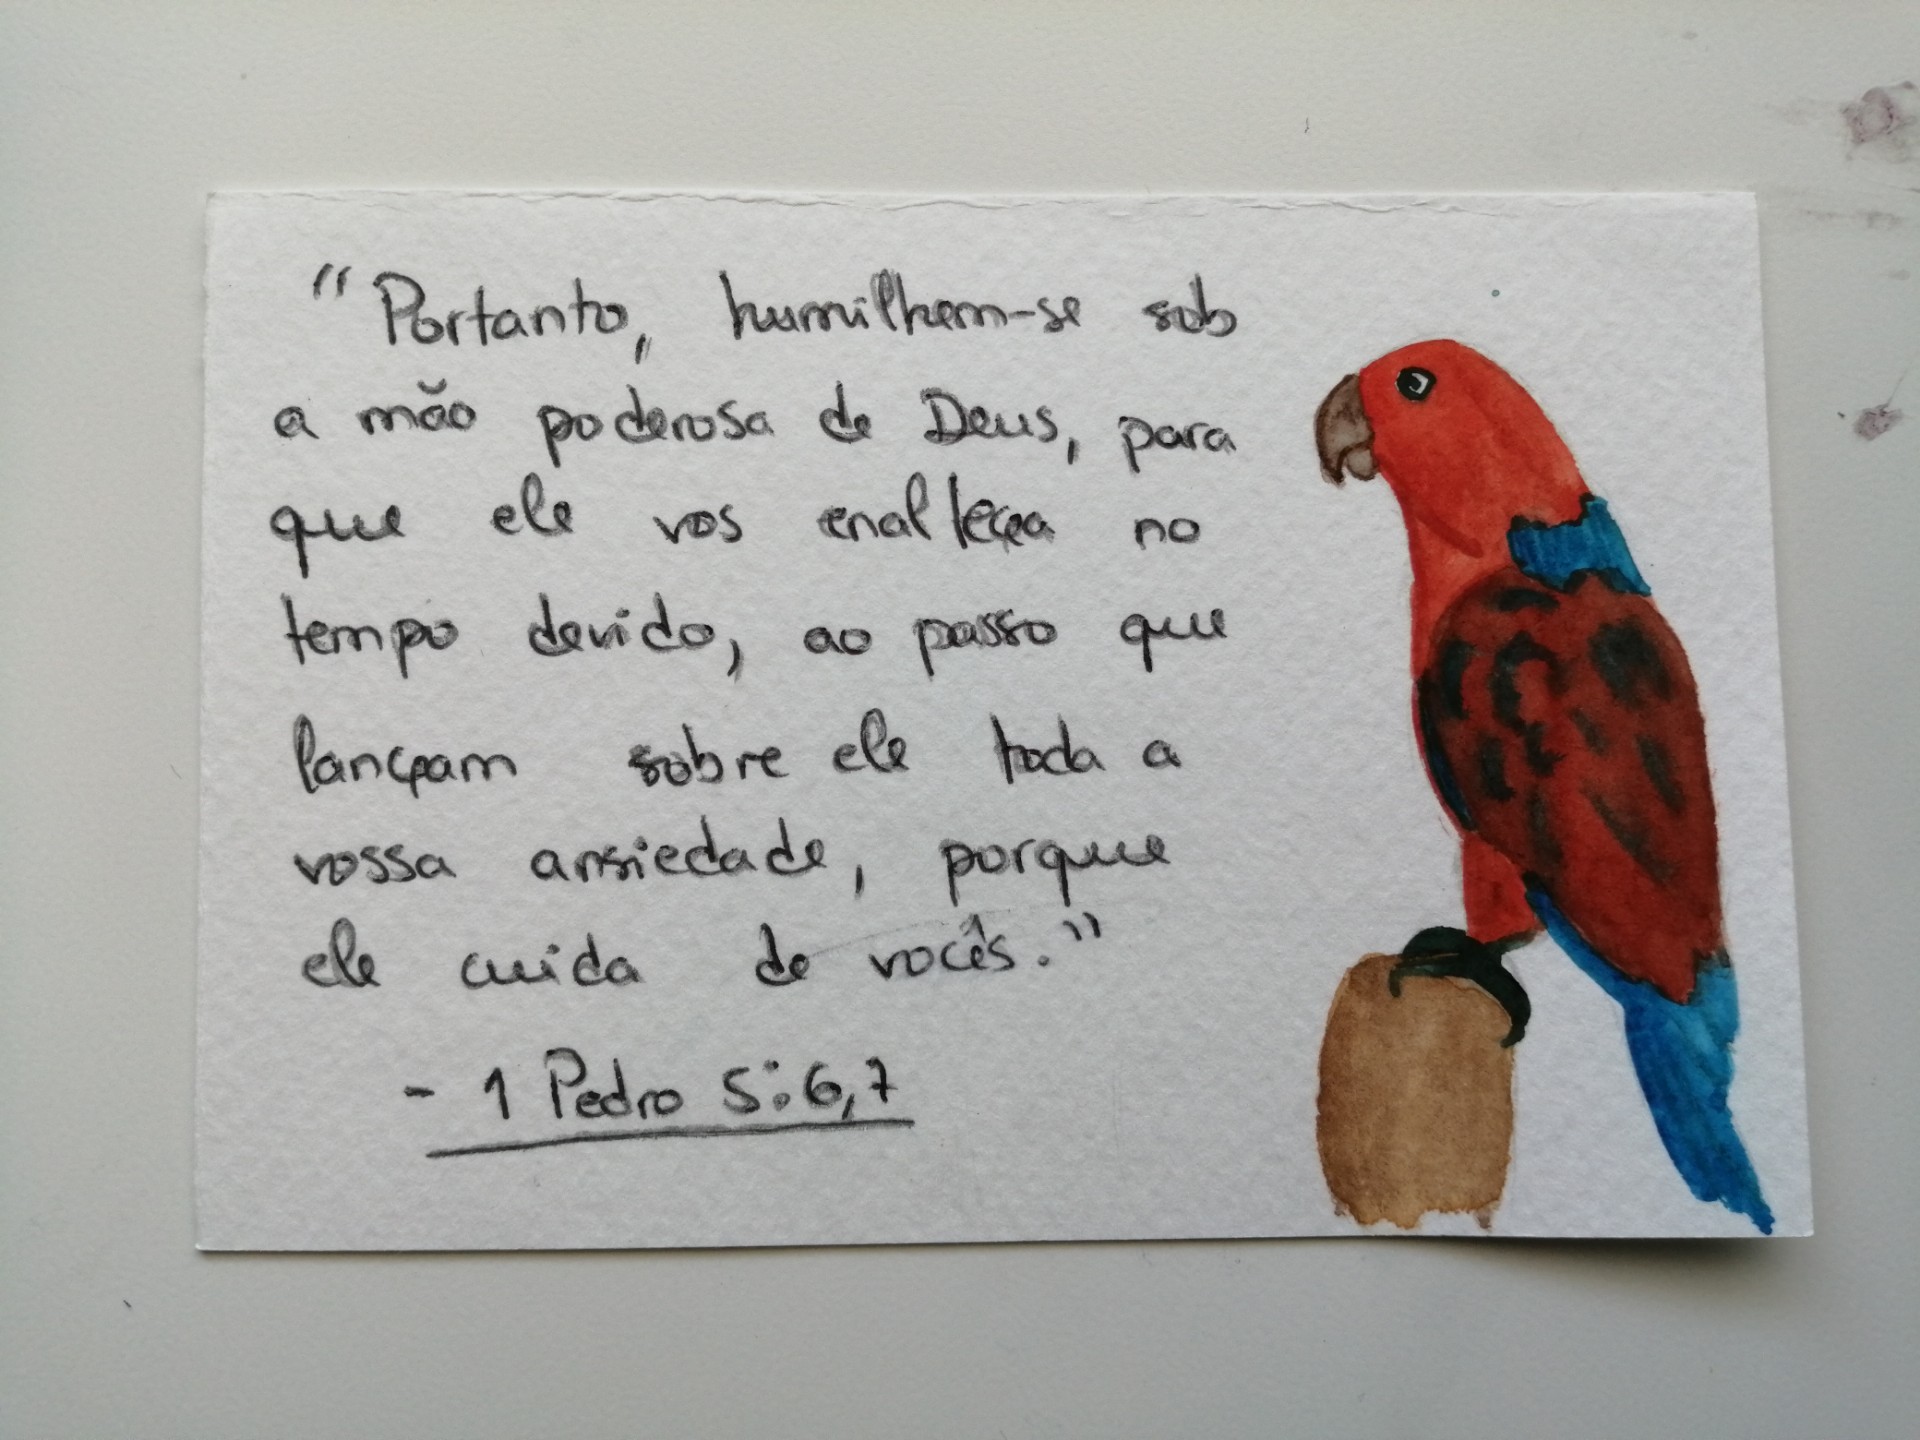 "Portanto, humilhem-se sob
a mão poderosa de Deus, para
que ele vos enalteça no
tempo devido, ao passo que
lançam sobre ele toda a
vossa ansiedade, porque
ele cuida de vocês."
- 1 Pedro 5:6,7